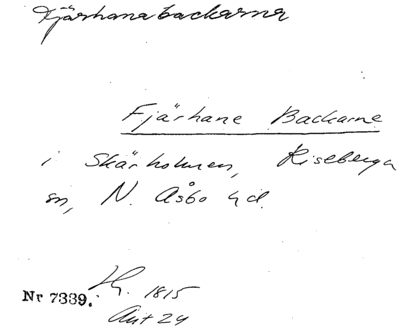 Fjärhanabackarna
Fjärhane Backarne
i Skärholmen, Riseberga
sn, N. Åsbo hd.
Nr 7339. 1815
Akt 24